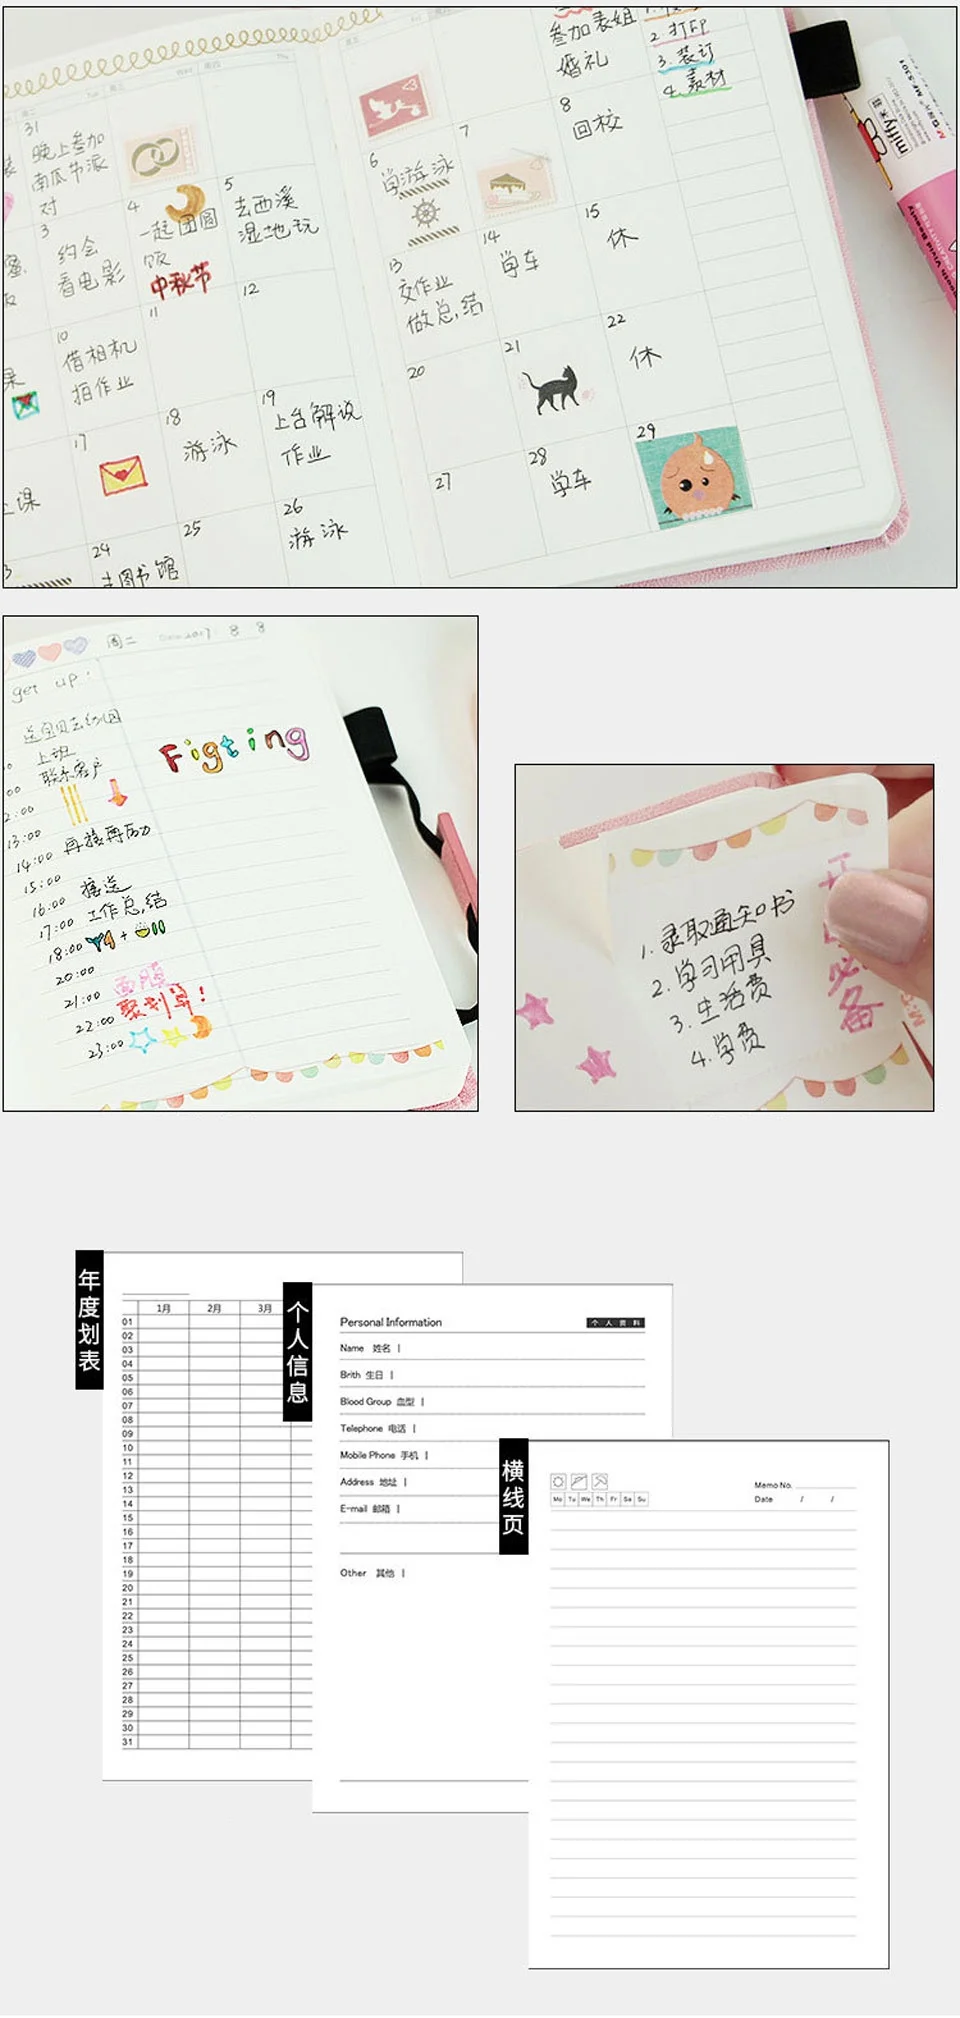 周二 Tue 周三 Wed 周四 Thu
31
晚上参加
南瓜节派
对
3
约会
看电影
4
一起团圆
饭
中秋节
5
去西溪
湿地玩
10
借相机
拍作业
11
12
17
18
游泳
19
上台解说
作业
上课
24
去图书馆
25
26
游泳
参加表姐
婚礼
2.打印
3.装订
4.素材
6
学游泳
7
8
回校
13
交作业
做总结
14
学车
15
休
20
21
22
休
27
28
学车
29
miffy米菲
MF-5301
周二 Date 2017. 8 8
get up:
送宝贝去幼儿园
上班
联系客户
13:00
14:00 再接再厉
15:00
16:00 接送
17:00 工作总结
18:00 +
20:00
21:00 面膜
22:00 聚划算!
23:00
Figting
1.录取通知书
2.学习用具
3.生活费
4.学费
必备
年度划表
1月 2月 3月
01
02
03
04
05
06
07
08
09
10
11
12
13
14
15
16
17
18
19
20
21
22
23
24
25
26
27
28
29
30
31
个人信息
Personal Information 个人资料
Name 姓名
Brith 生日
Blood Group 血型
Telephone 电话
Mobile Phone 手机
Address 地址
E-mail 邮箱
Other 其他
横线页
Memo No.
Mo Tu We Th Fr Sa Su
Date / /